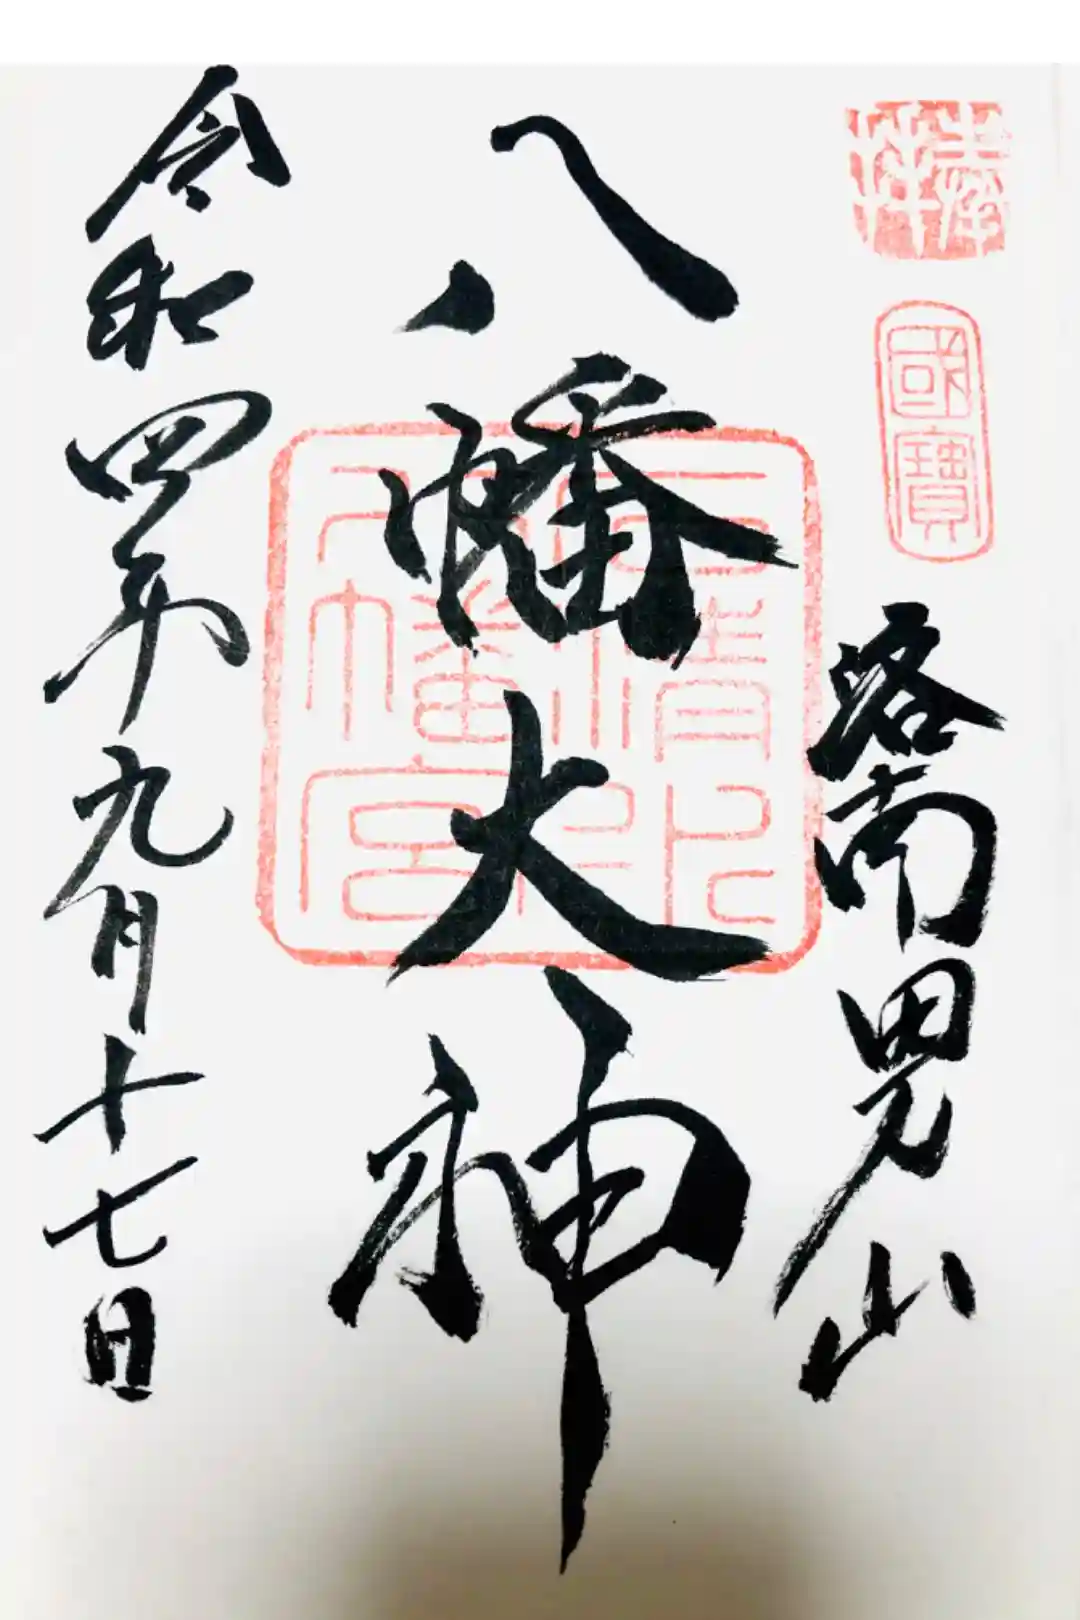 奉拝
國寶
洛南男山
八幡大神
八幡宮
令和四年九月十七日